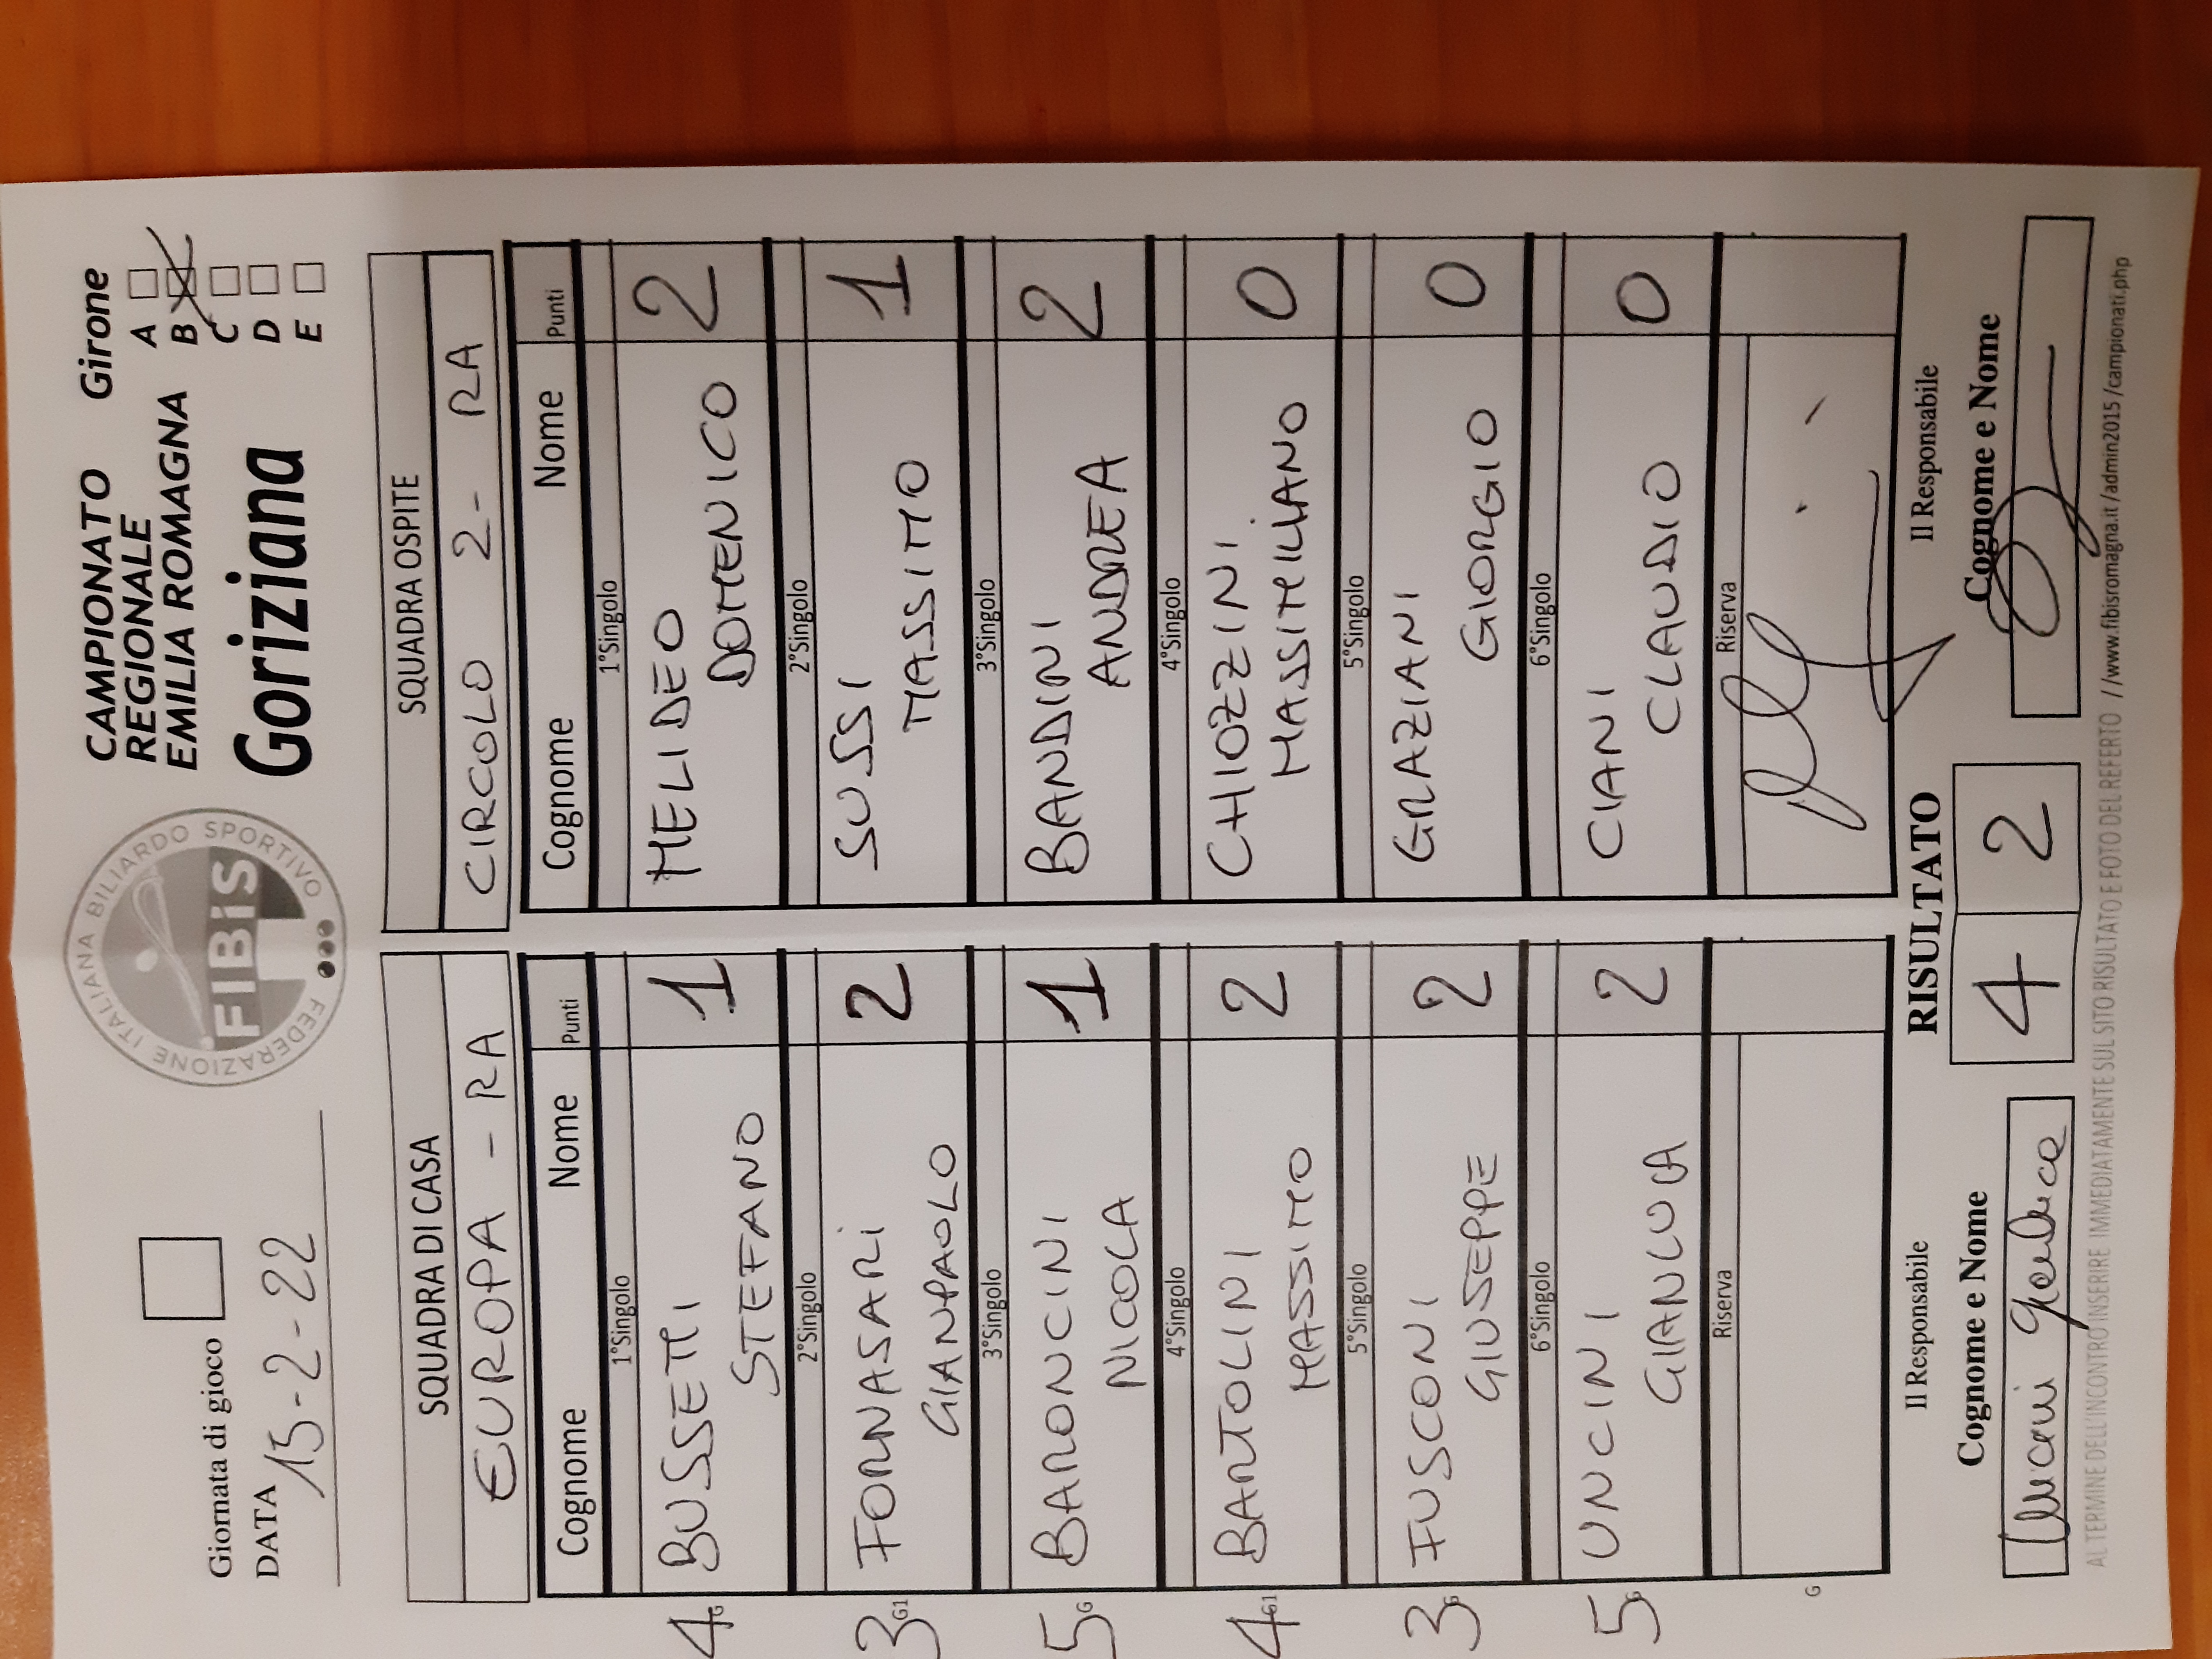 Giornata di gioco
DATA 15-2-22
FEDERAZIONE ITALIANA BILIARDO SPORTIVO
FIBiS
CAMPIONATO
REGIONALE
EMILIA ROMAGNA
Goriziana
Girone
A
B
C
D
E
SQUADRA DI CASA
EUROPA - RA
Cognome Nome Punti
1°Singolo
4 G BUSSETTI STEFANO 1
2°Singolo
3 G1 FORNASARI GIANPAOLO 2
3°Singolo
5 G BARONCINI NICOLA 1
4°Singolo
4 G1 BARTOLINI MASSIMO 2
5°Singolo
3 G FUSCONI GIUSEPPE 2
6°Singolo
5 G UNCINI GIANLUCA 2
Riserva
G
SQUADRA OSPITE
CIRCOLO 2 - RA
Cognome Nome Punti
1°Singolo
MELIDEO DOMENICO 2
2°Singolo
SUSSI MASSIMO 1
3°Singolo
BANDINI ANDREA 2
4°Singolo
CHIOZZINI MASSIMILIANO 0
5°Singolo
GRAZIANI GIORGIO 0
6°Singolo
CIANI CLAUDIO 0
Riserva
Il Responsabile
Cognome e Nome
Uncini Gianluca
RISULTATO
4 2
Il Responsabile
Cognome e Nome
AL TERMINE DELL'INCONTRO INSERIRE IMMEDIATAMENTE SUL SITO RISULTATO E FOTO DEL REFERTO //www.fibisromagna.it/admin2015/campionati.php